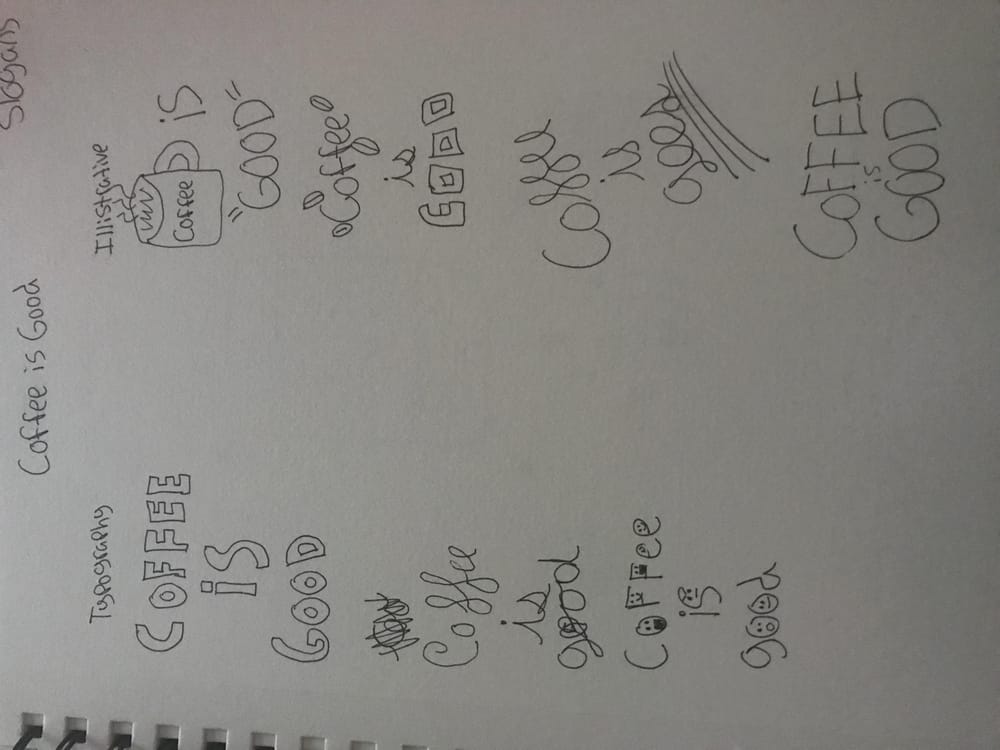 Slogans
Coffee is Good
Typography
COFFEE
iS
GOOD
Coffee
is
good
COFFee
is
good
Illistrative
Coffee
is
"GOOD"
Coffee
is
GOOD
Coffee
is
good
COFFEE
is
GOOD